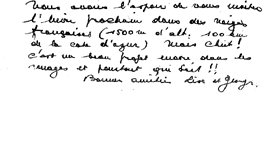 Nous avons l'espoir de vous inviter
l'hiver prochain dans des neiges
françaises (1500 m d'alt. 100 km
de la côte d'azur) Mais chut!
c'est un beau projet encore dans les
nuages et pourtant qui sait!!
Bonnes amitiés Lise et